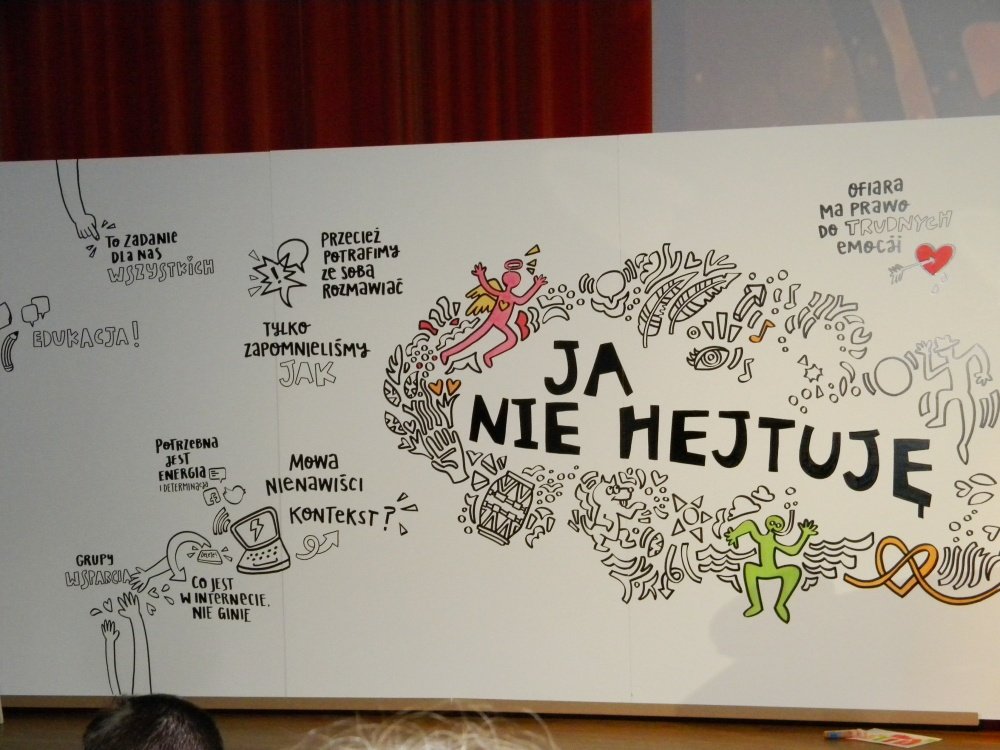 TO ZADANIE
DLA NAS
WSZYSTKICH
EDUKACJA!
PRZECIEŻ
POTRAFIMY
ZE SOBĄ
ROZMAWIAĆ
TYLKO
ZAPOMNIELIŚMY
JAK
OFIARA
MA PRAWO
DO TRUDNYCH
EMOCJI
JA
NIE HEJTUJĘ
POTRZEBNA
JEST
ENERGIA
I DETERMINACJA
MOWA
NIENAWIŚCI
KONTEKST?
GRUPY
WSPARCIA
CO JEST
W INTERNECIE,
NIE GINIE